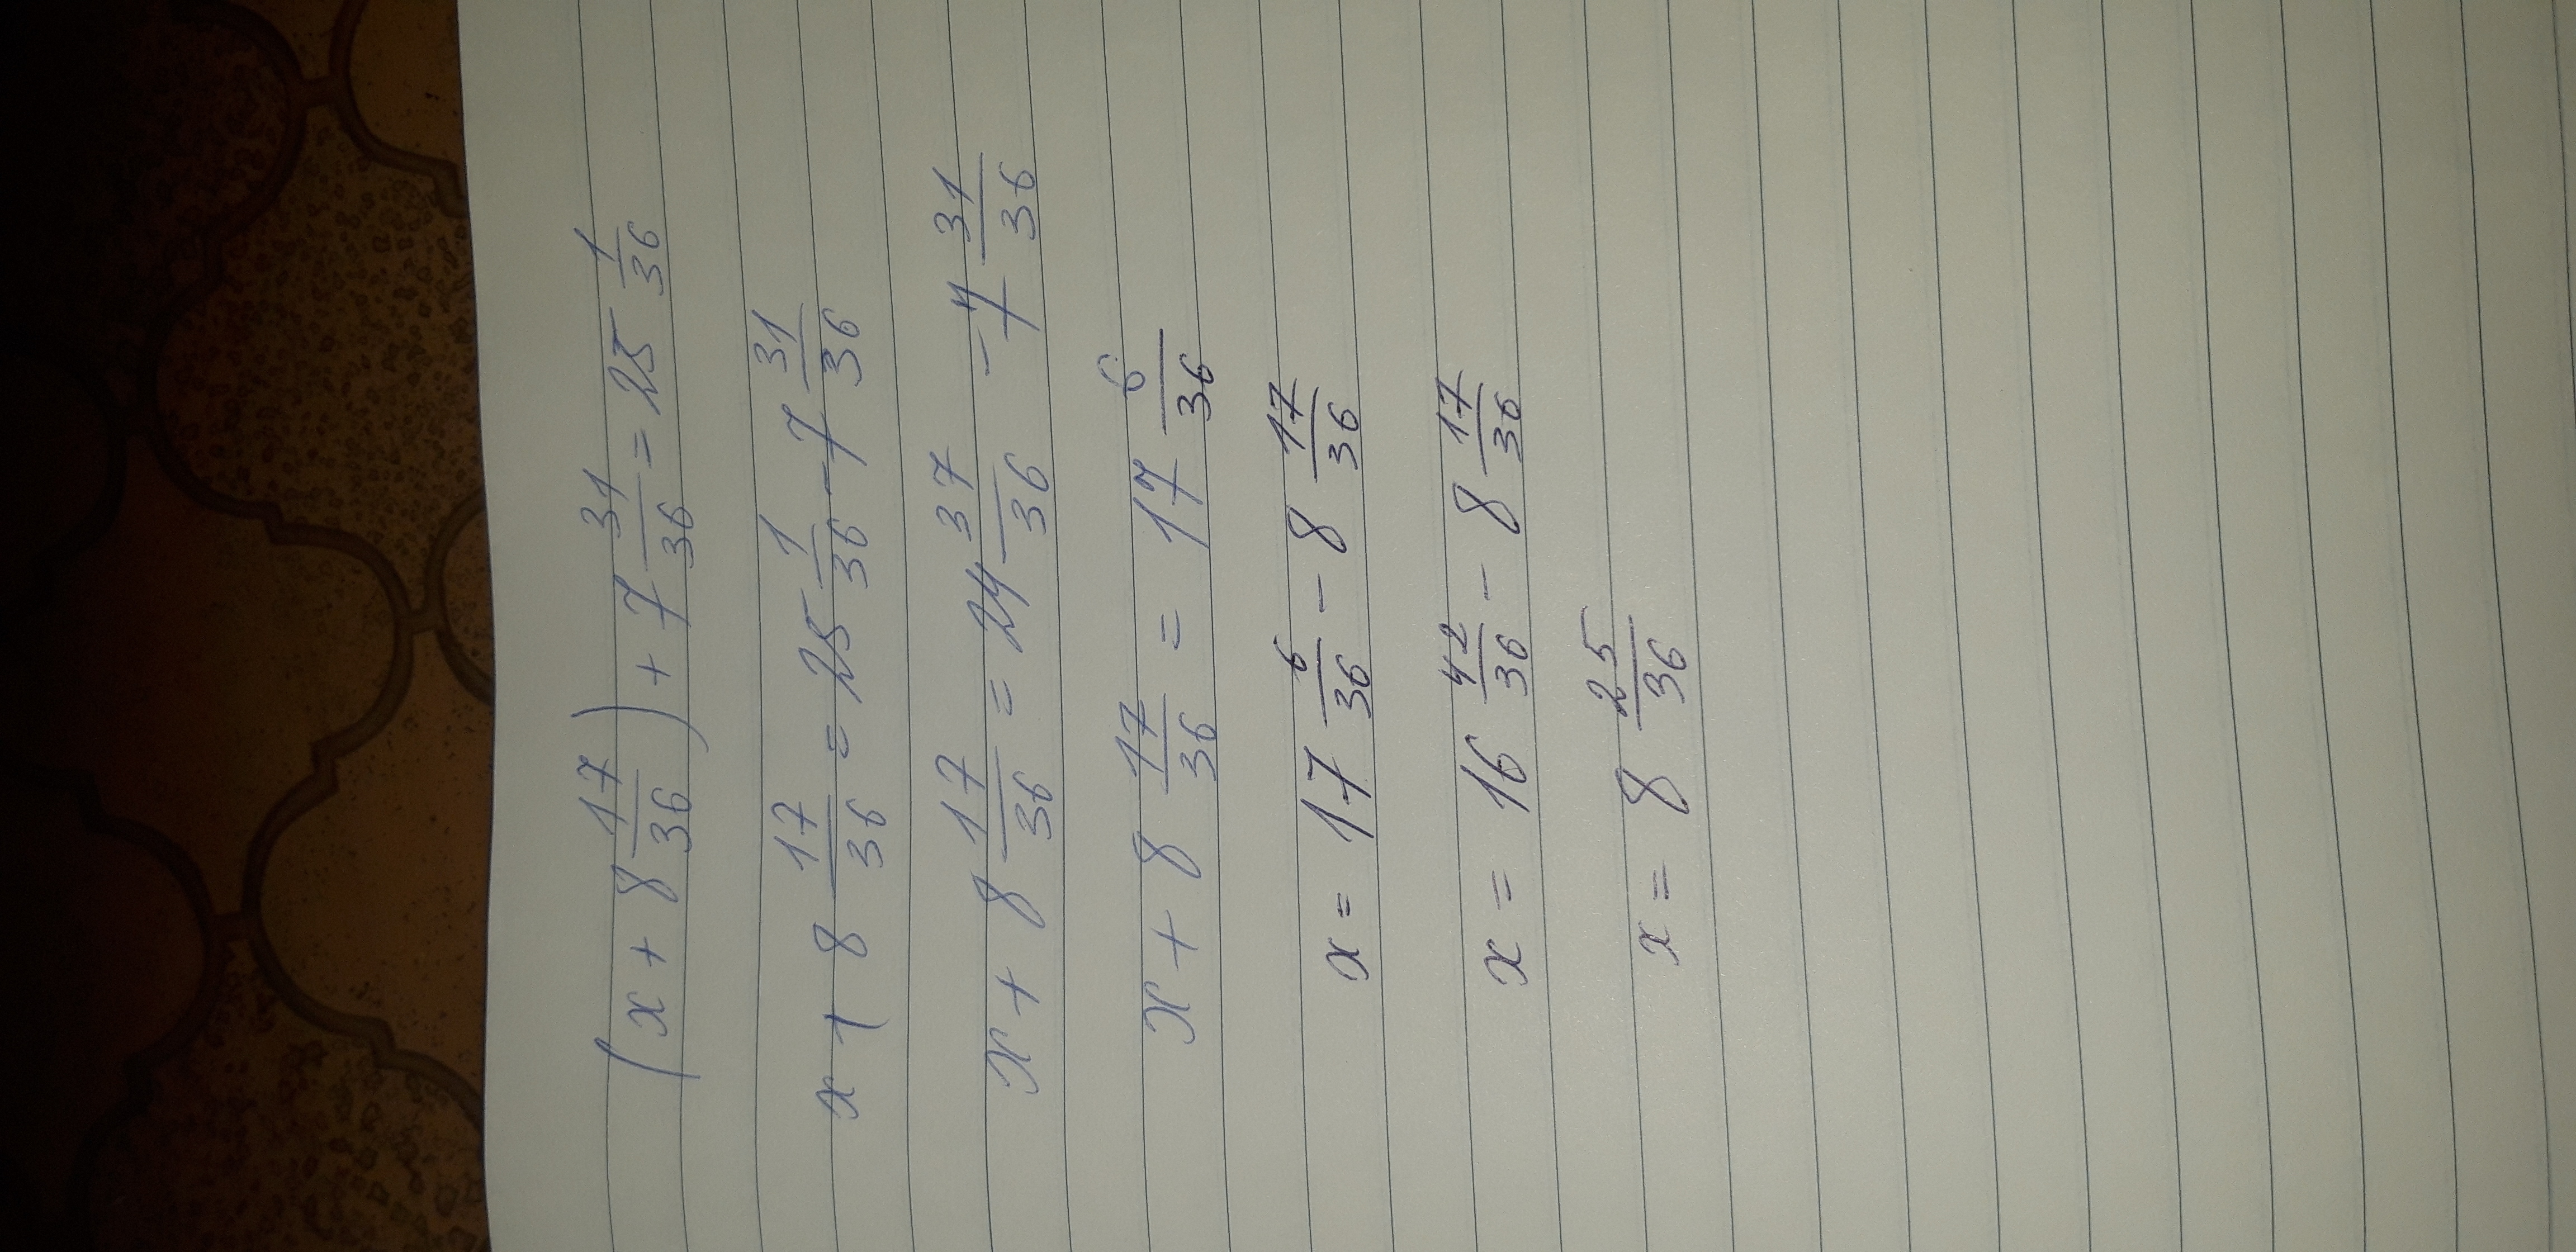 (x + 8 17/36) + 7 31/36 = 25 1/36
x + 8 17/36 = 25 1/36 - 7 31/36
x + 8 17/36 = 24 37/36 - 7 31/36
x + 8 17/36 = 17 6/36
x = 17 6/36 - 8 17/36
x = 16 42/36 - 8 17/36
x = 8 25/36